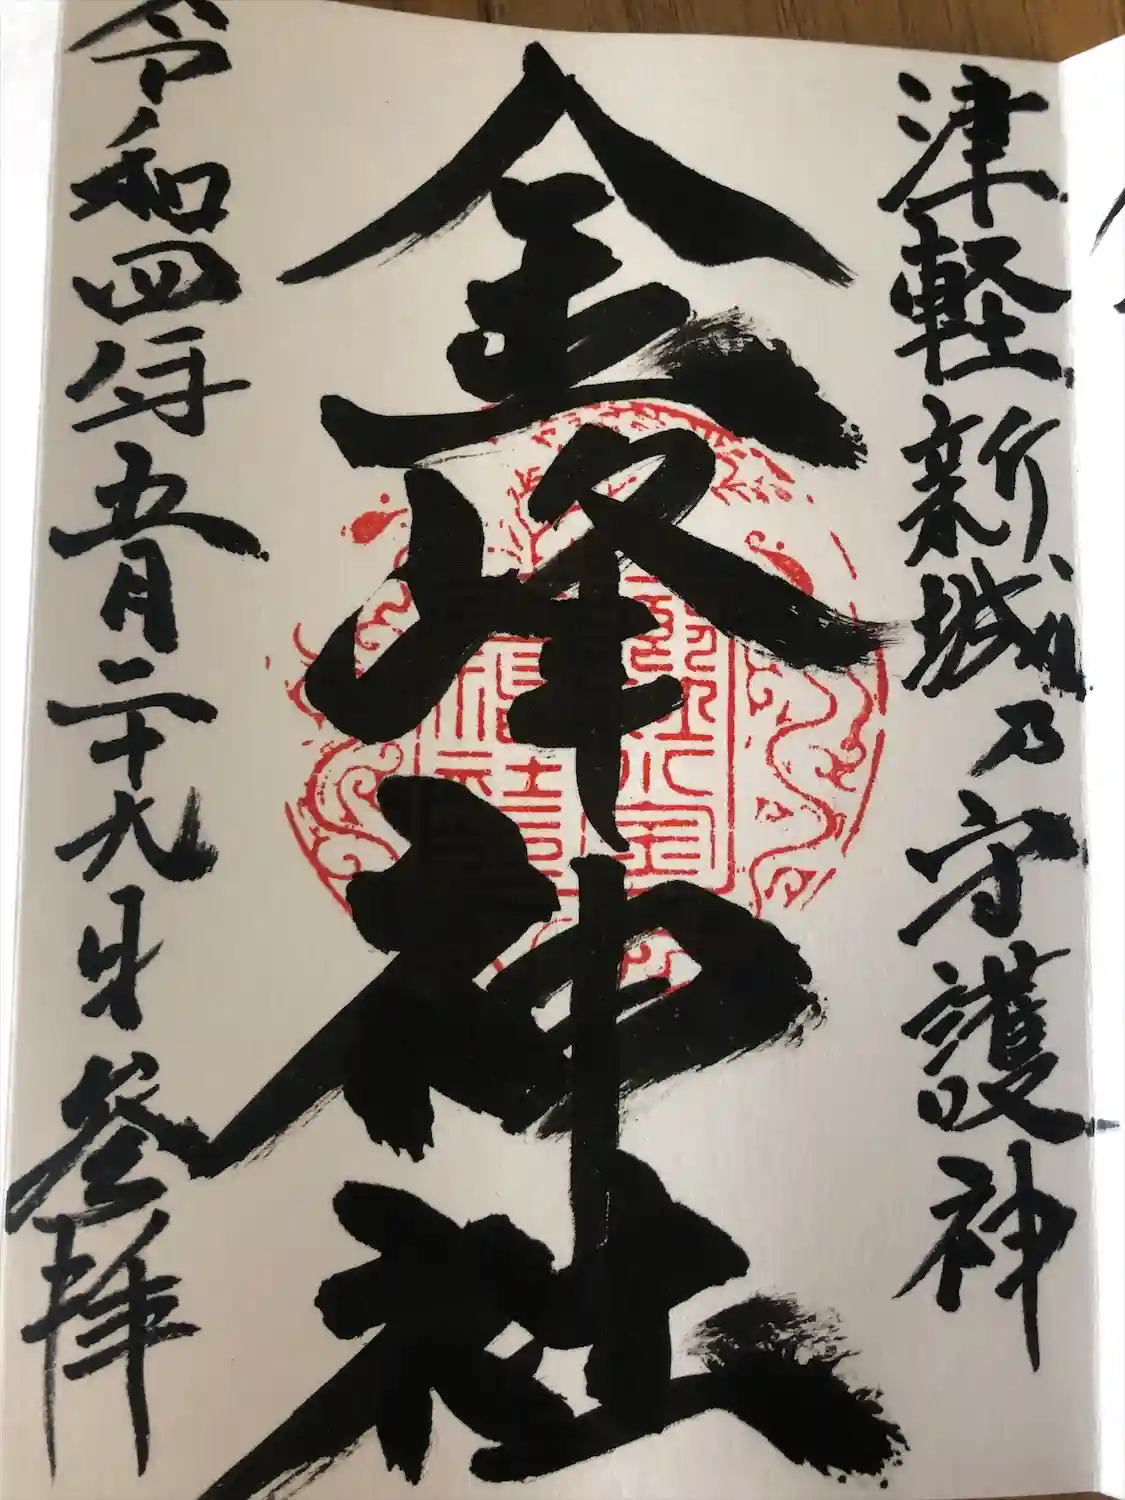 津軽新城乃守護神
金峰神社
令和四年五月二十九日参拝